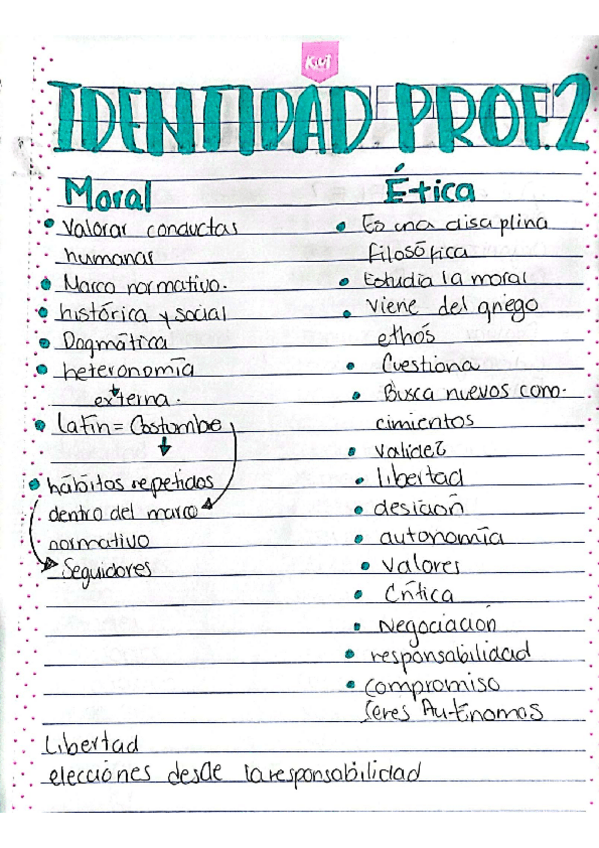 Kat
IDENTIDAD PROF.2
Moral
• Valorar conductas
humanas
• Marco normativo.
• histórica y social
• Dogmática
• heteronomía
externa.
• latín = Costumbe
• hábitos repetidos
dentro del marco
normativo
Seguidores
Ética
• Es una disciplina
filosófica
• Estudia la moral
• Viene del griego
ethós
• Cuestiona
• Busca nuevos cono-
cimientos
• validez
• libertad
• desición
• autonomía
• Valores
• Crítica
• Negociación
• responsabilidad
• compromiso
Seres Autónomos
Libertad
elecciónes desde la responsabilidad